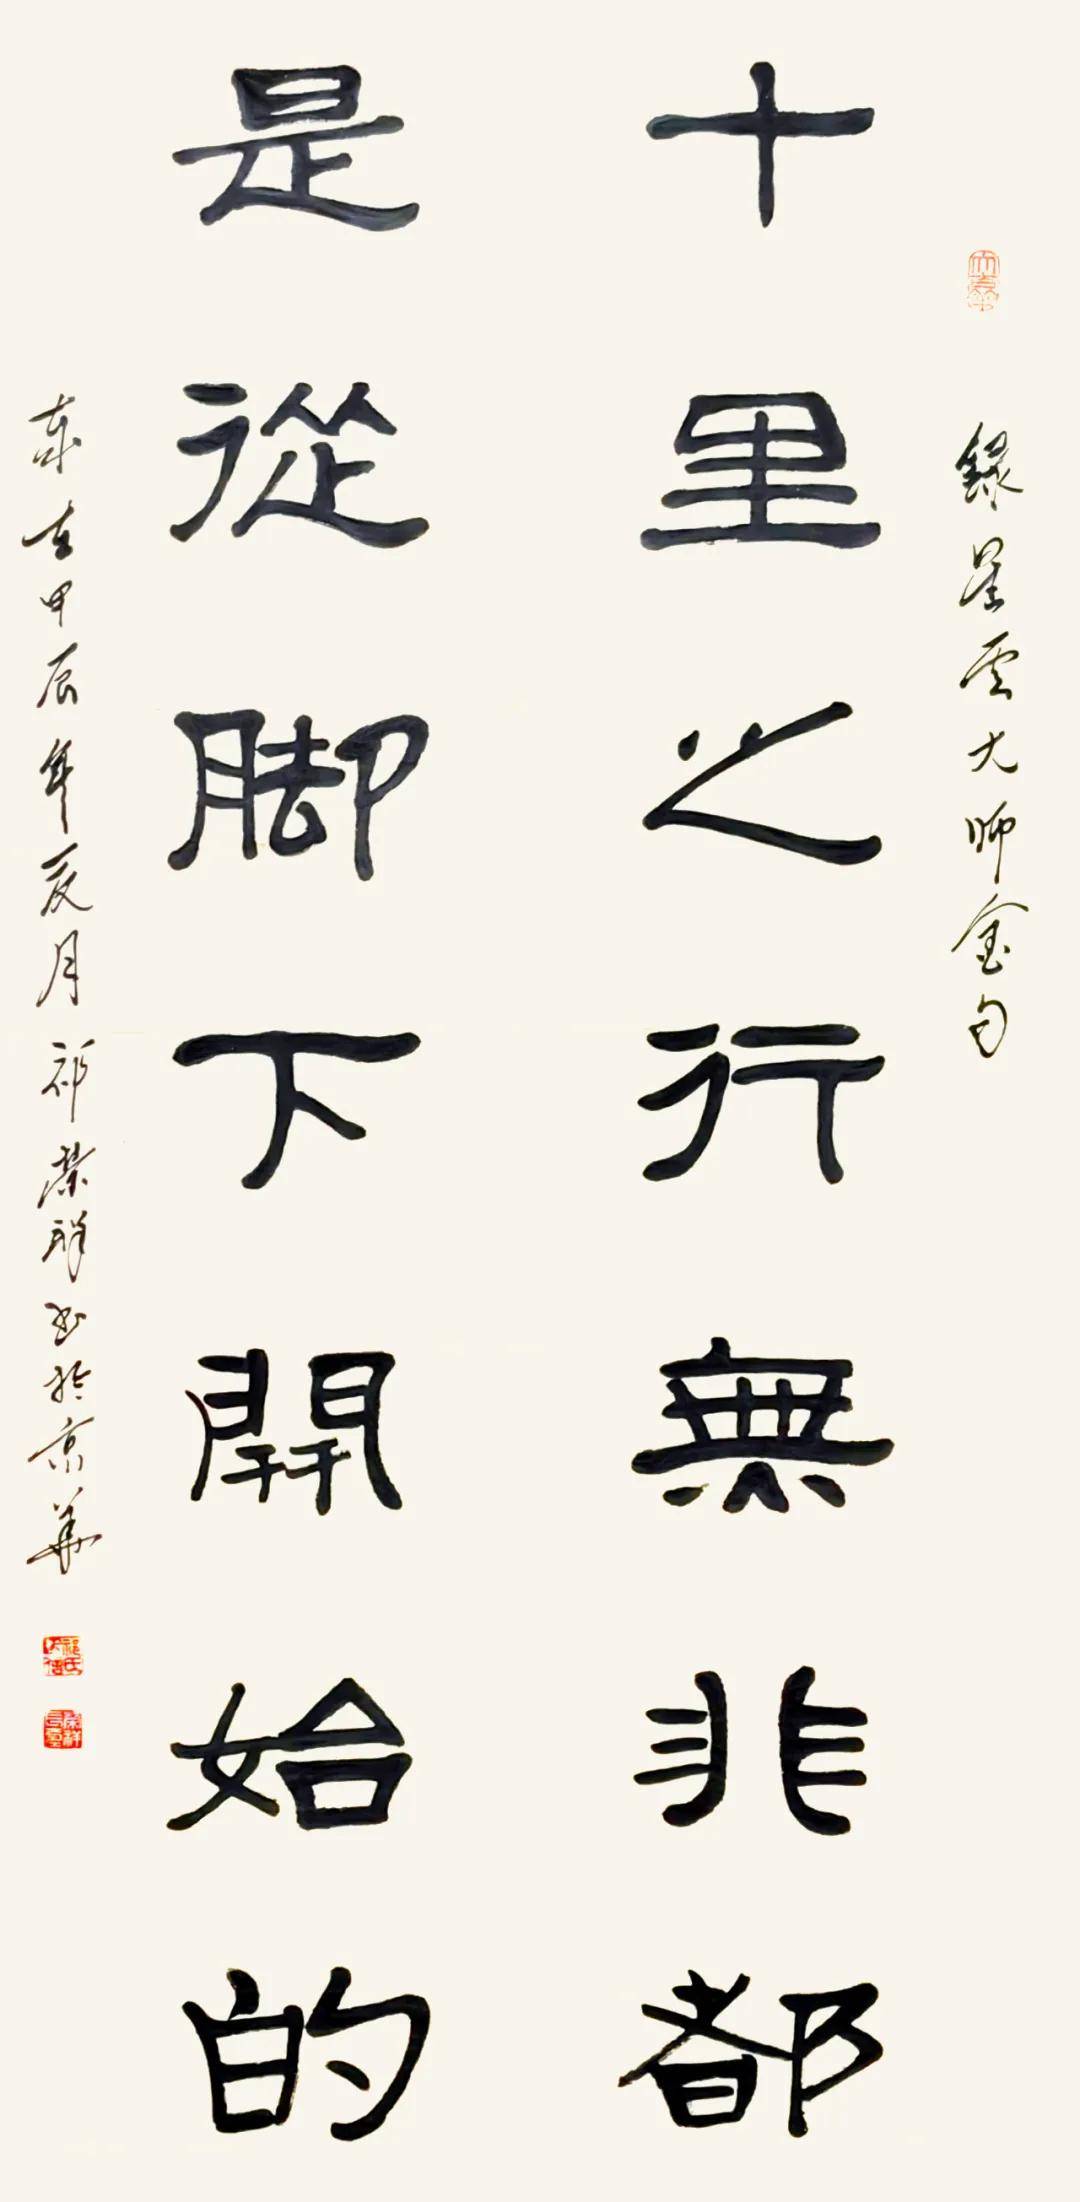 錄星雲大師金句
十里之行無非都
是從脚下開始的
歲在甲辰年夏月祁榮祥書於京華